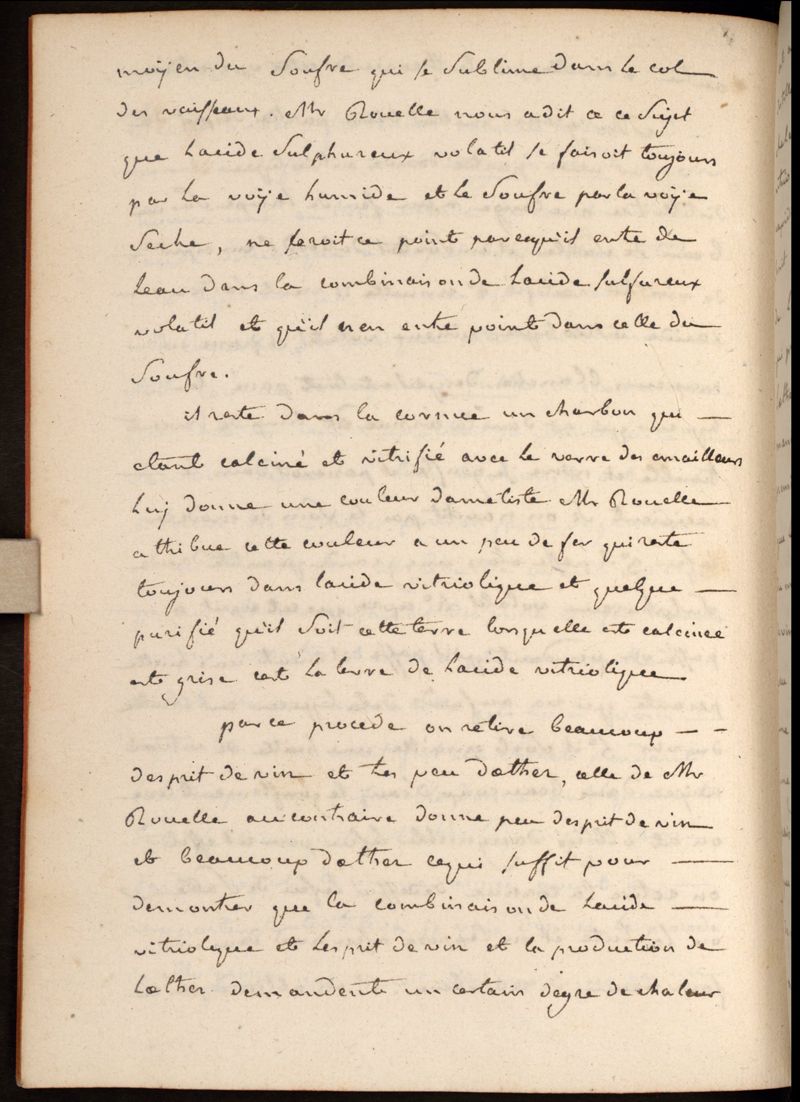 moÿen du Soufre qui se Sublime dans le col
des vaisseaux. Mr Rouelle nous a dit a ce Sujet
que Lacide Sulphureux volatil se faisoit toujours
par La voÿe humide et le Soufre par la voÿe
Seche, ne seroit ce point parcequ'il entre de
Leau dans la combinaison de Lacide sulfureux
volatil et qu'il n'en entre point dans celle du
Soufre.
il reste dans la cornue un charbon qui —
etant calciné et vitrifié avec le verre des emailleurs
Luÿ donne une couleur dametiste Mr Rouelle
attribue cette couleur a un peu de fer qui reste
toujours dans lacide vitriolique et quelque —
purifié qu'il Soit cette terre lorsquelle est calcinee
est grise cest La terre de Lacide vitriolique
par ce procede on retire beaucoup — -
desprit de vin et tres peu dæther, celle de Mr
Rouelle au contraire donne peu desprit de vin
et beaucoup dæther ce qui suffit pour —
demontrer que la combinaison de Lacide —
vitriolique et Lesprit de vin et la production de
Læther demandent un certain degre de chaleur